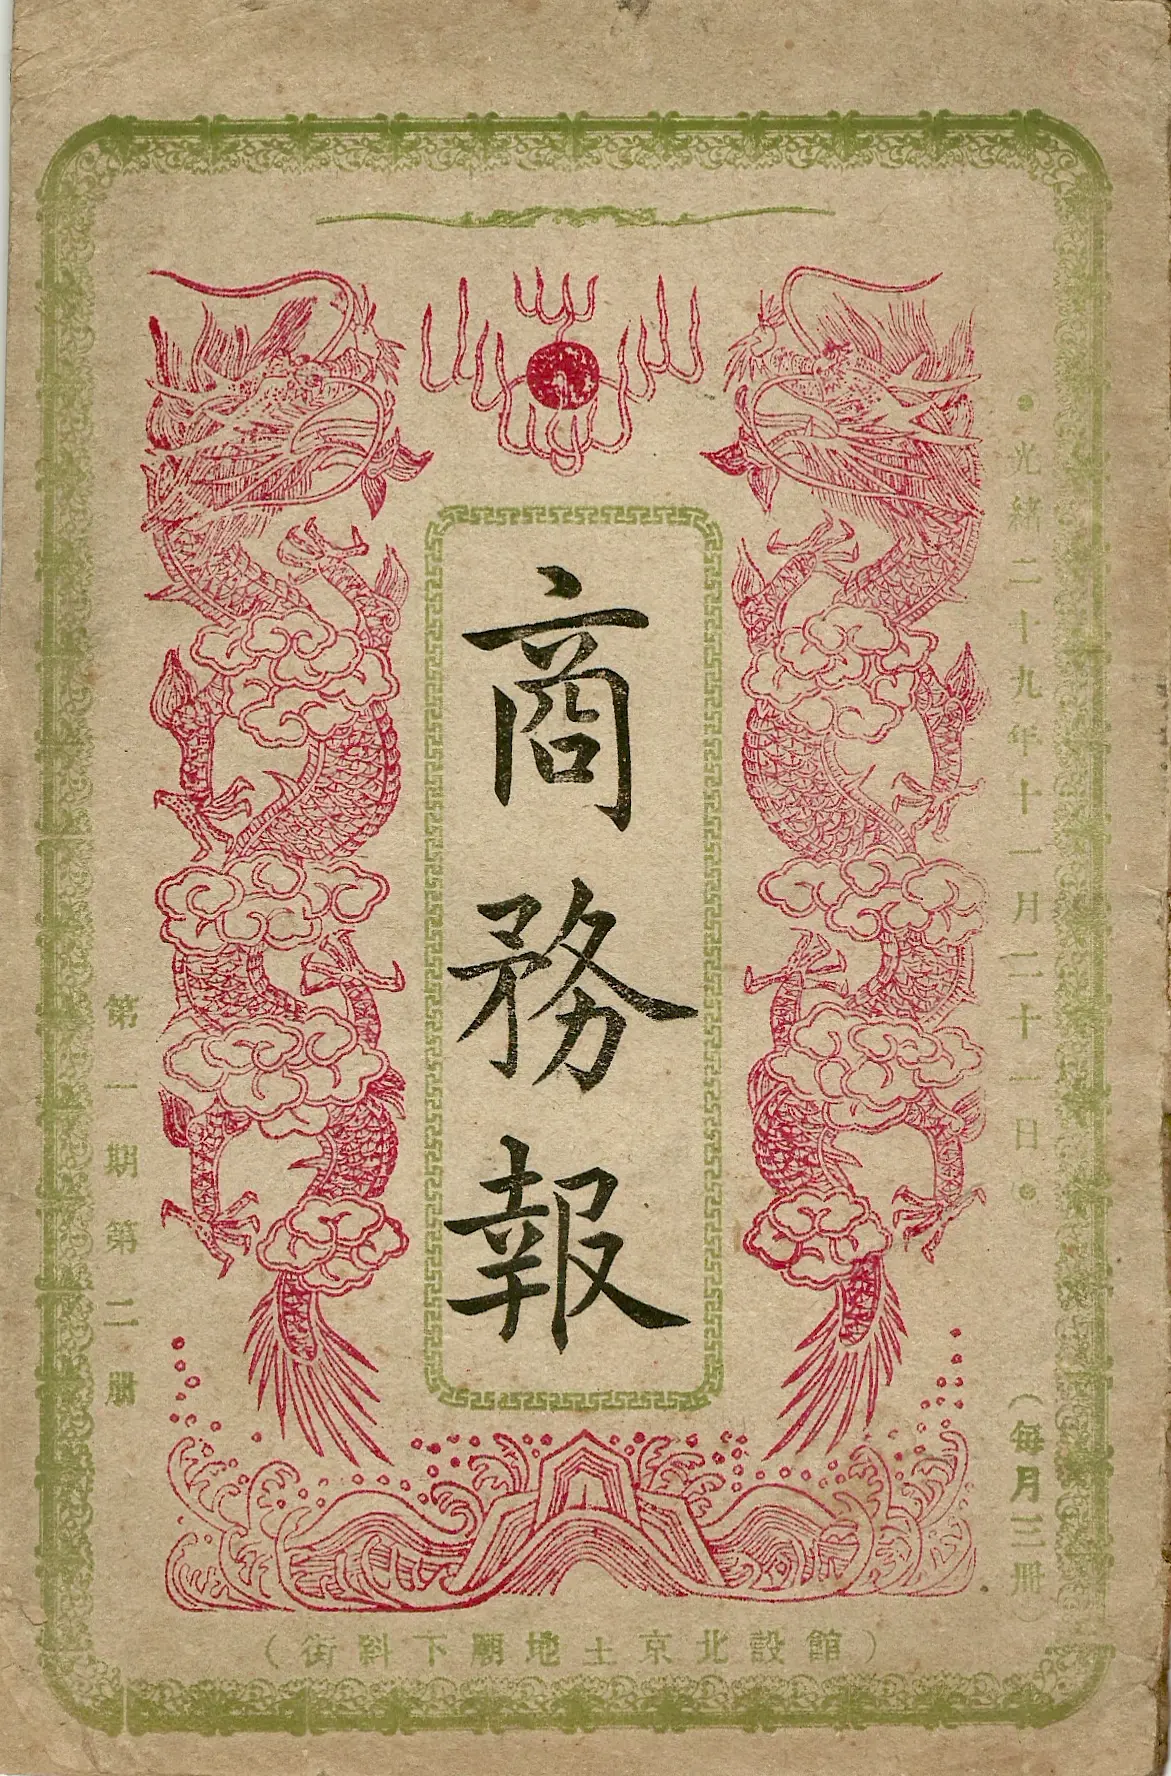 ●光緒二十九年十一月二十一日●
（每月三册）
商務報
第一期第二册
（館設北京土地廟下斜街）